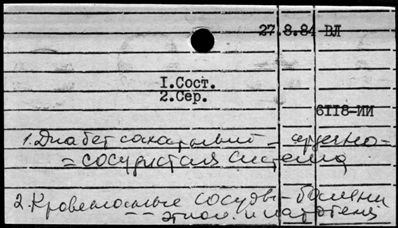 27.8.84 ВЛ
I.Сост.
2.Сер.
6II8-ИИ
1. Диабет сахарный - сердечно-
= сосудистая система
2. Кровеносные сосуды - болезни
- этиол. и патогенез